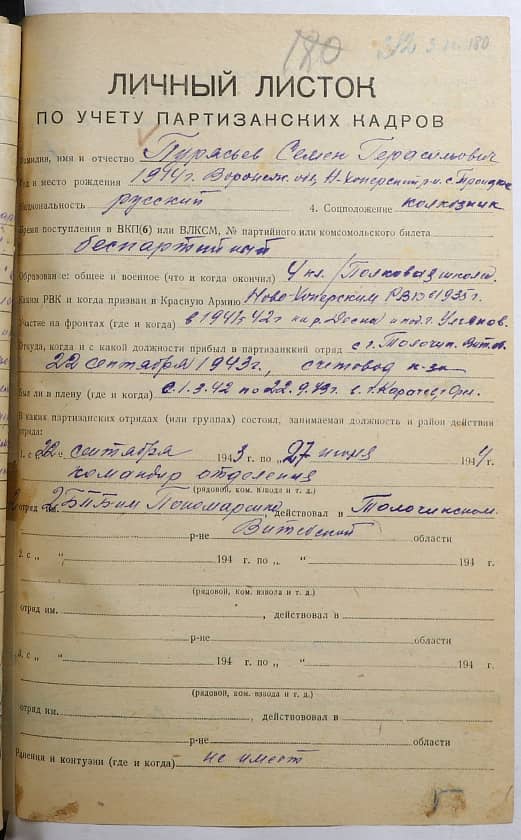 180
180
ЛИЧНЫЙ ЛИСТОК
ПО УЧЕТУ ПАРТИЗАНСКИХ КАДРОВ
Фамилия, имя и отчество Пурясьев Семен Герасимович
од и место рождения 1914 г. Воронеж. обл. Н. Хоперский р-н с.
Национальность русский 4. Соцположение колхозник
Время поступления в ВКП(б) или ВЛКСМ, № партийного или комсомольского билета
беспартийный
Образование: общее и военное (что и когда окончил) 4 кл. /Полковая школа
Каким РВК и когда призван в Красную Армию Ново-Хоперским РВК 1935 г.
Участие на фронтах (где и когда) в 1941/42 г. на р. Десна и под г.
Откуда, когда и с какой должности прибыл в партизанский отряд с г. Толочин. Витеб.
22 сентября 1943 г., счетовод
Был ли в плену (где и когда) с 1.3.42 по 22.9.43 г. г. Карачев Орл.
В каких партизанских отрядах (или группах) состоял, занимаемая должность и район действия
отряда:
1. с „22 „ сентября 1943 г. по „27 июня 1944 г.
командир отделения
(рядовой, ком. взвода и т. д.)
отряд им. 2 Б-н Бим Пономаренко действовал в Толочинском
Витебской
р-не области
2. с „ “ 194 г. по „ “ 194 г.
(рядовой, ком. взвода и т. д.)
отряд им. , действовал в
р-не области
3. с „ “ 194 г. по „ “ 194 г.
(рядовой, ком. взвода и т. д.)
отряд им. , действовал в
р-не области
Ранения и контузии (где и когда) не имеет